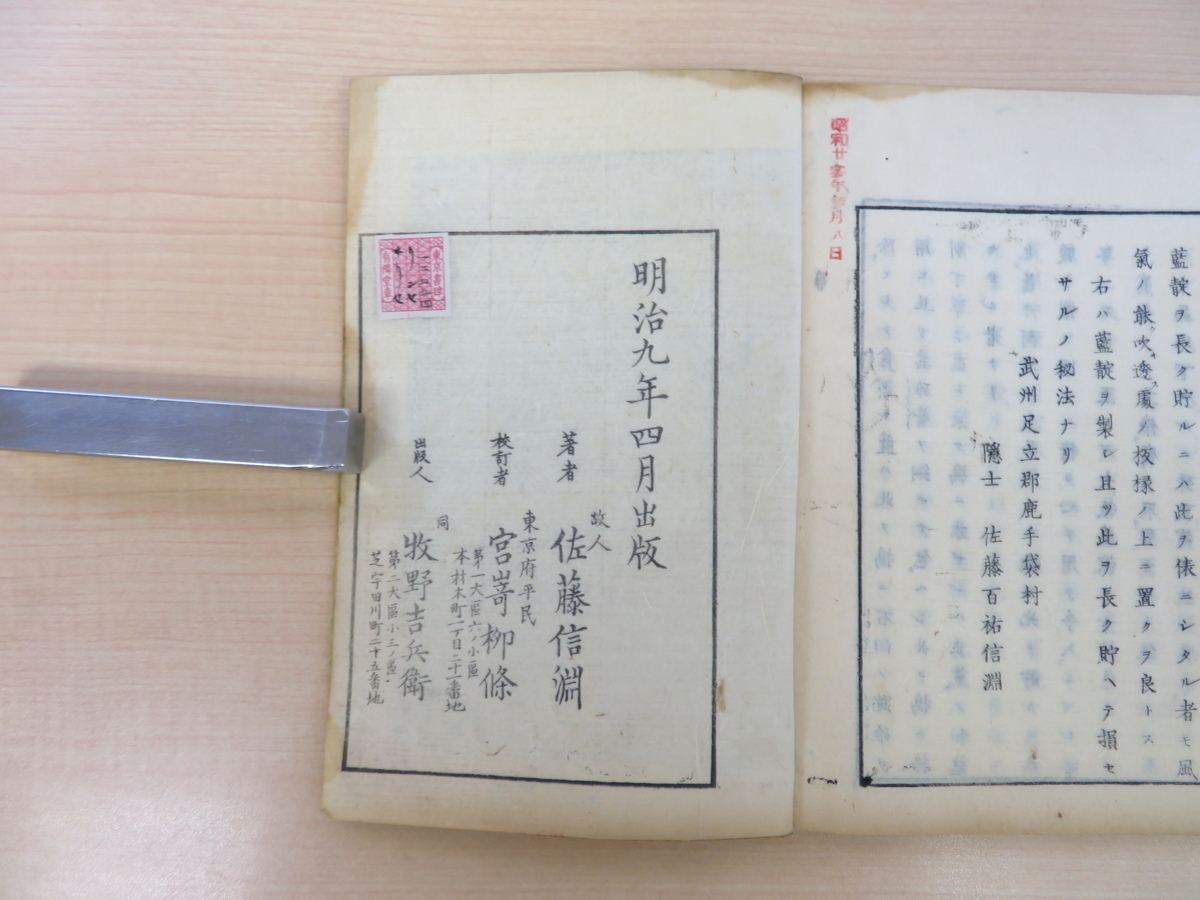 藍靛ヲ長ク貯ルニハ此ヲ俵ニシタル者モ風
氣ノ能吹透ノ上ニ置クヲ良トス
右ハ藍靛ヲ製シ且ツ此ヲ長ク貯ヘテ損セ
サルノ秘法ナリ
武州足立郡鹿手袋村
隱士 佐藤百祐信淵
昭和廿年月八日
明治九年四月出版
著者 故人 佐藤信淵
東京府平民
校訂者 宮嵜柳條
第一大區六ノ小區
本材木町一丁目二十一番地
同
出版人 牧野吉兵衛
第二大區小三ノ區
芝宇田川町二十五番地
東京書肆